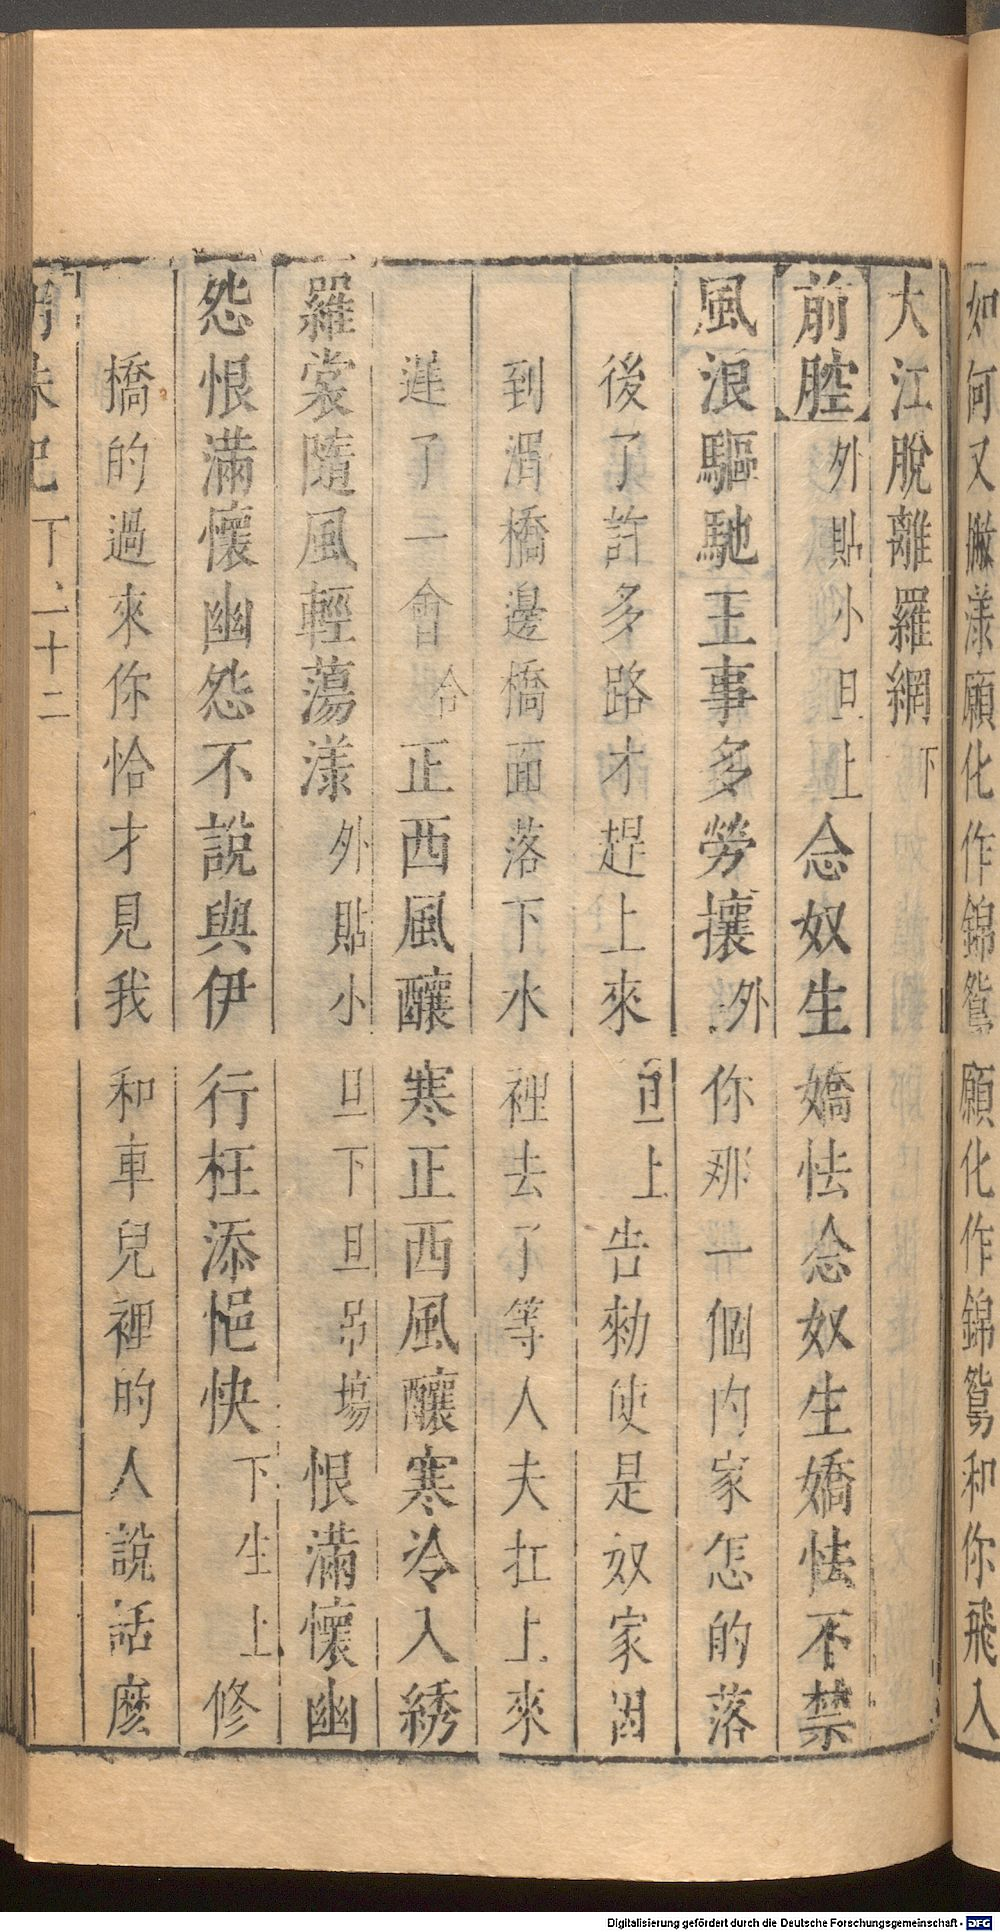 如何又撇漾願化作錦鴛願化作錦鴛和你飛入
大江脫離羅網下
前腔外貼小旦上念奴生嬌怯念奴生嬌怯不禁
風浪驅馳王事多勞攘外你那一個內家怎的落
後了許多路才趕上來旦上告勑使是奴家因
到渭橋邊橋面落下水裡去了等人夫扛上來
遲了一會合正西風釀寒正西風釀寒冷入綉
羅裳隨風輕蕩漾外貼小旦下旦吊塲恨滿懷幽
怨恨滿懷幽怨不說與伊行枉添悒怏下生上修
橋的過來你恰才見我和車兒裡的人說話麽
明珠記下 二十二
Digitalisierung gefördert durch die Deutsche Forschungsgemeinschaft - DFG